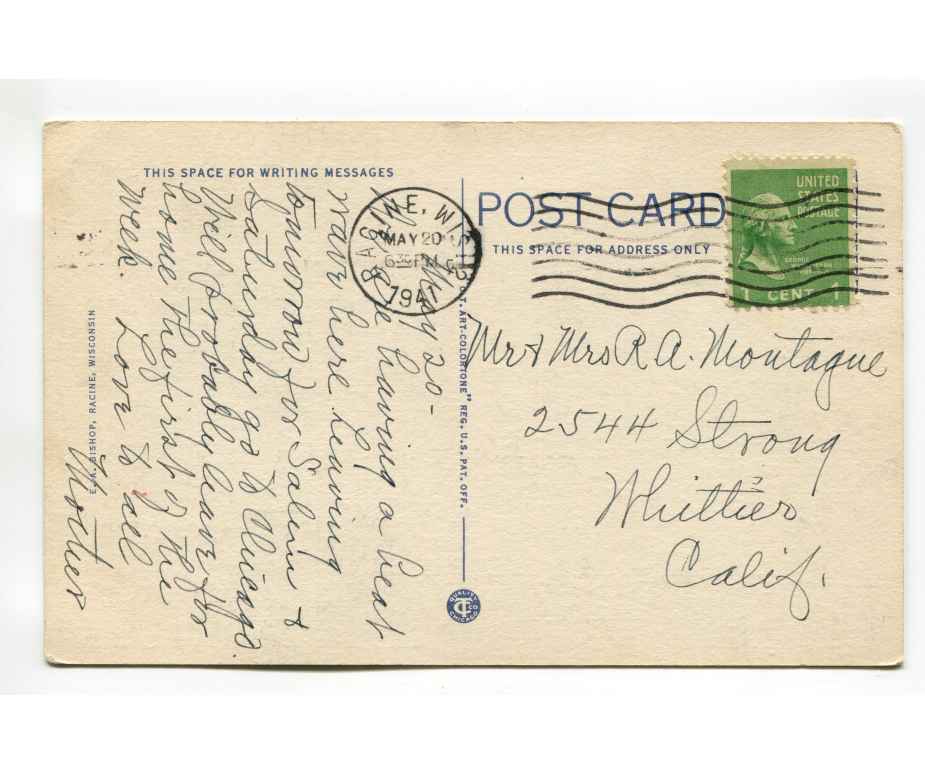 THIS SPACE FOR WRITING MESSAGES
May 20-
Are having a heat
wave here Leaving
tomorrow for Salem &
Saturday go to Chicago.
Will probably leave for
home the first of the
week. Love to all
Mother
E. A. BISHOP, RACINE, WISCONSIN
"C.T. ART-COLORTONE" REG. U.S. PAT. OFF.
QUALITY
CTCO
CHICAGO
POST CARD
THIS SPACE FOR ADDRESS ONLY
RACINE, WIS.
MAY 20
6 30 PM
194
UNITED
STATES
POSTAGE
GEORGE
1 CENT 1
Mr & Mrs R. A. Montague
2544 Strong
Whittier
Calif.